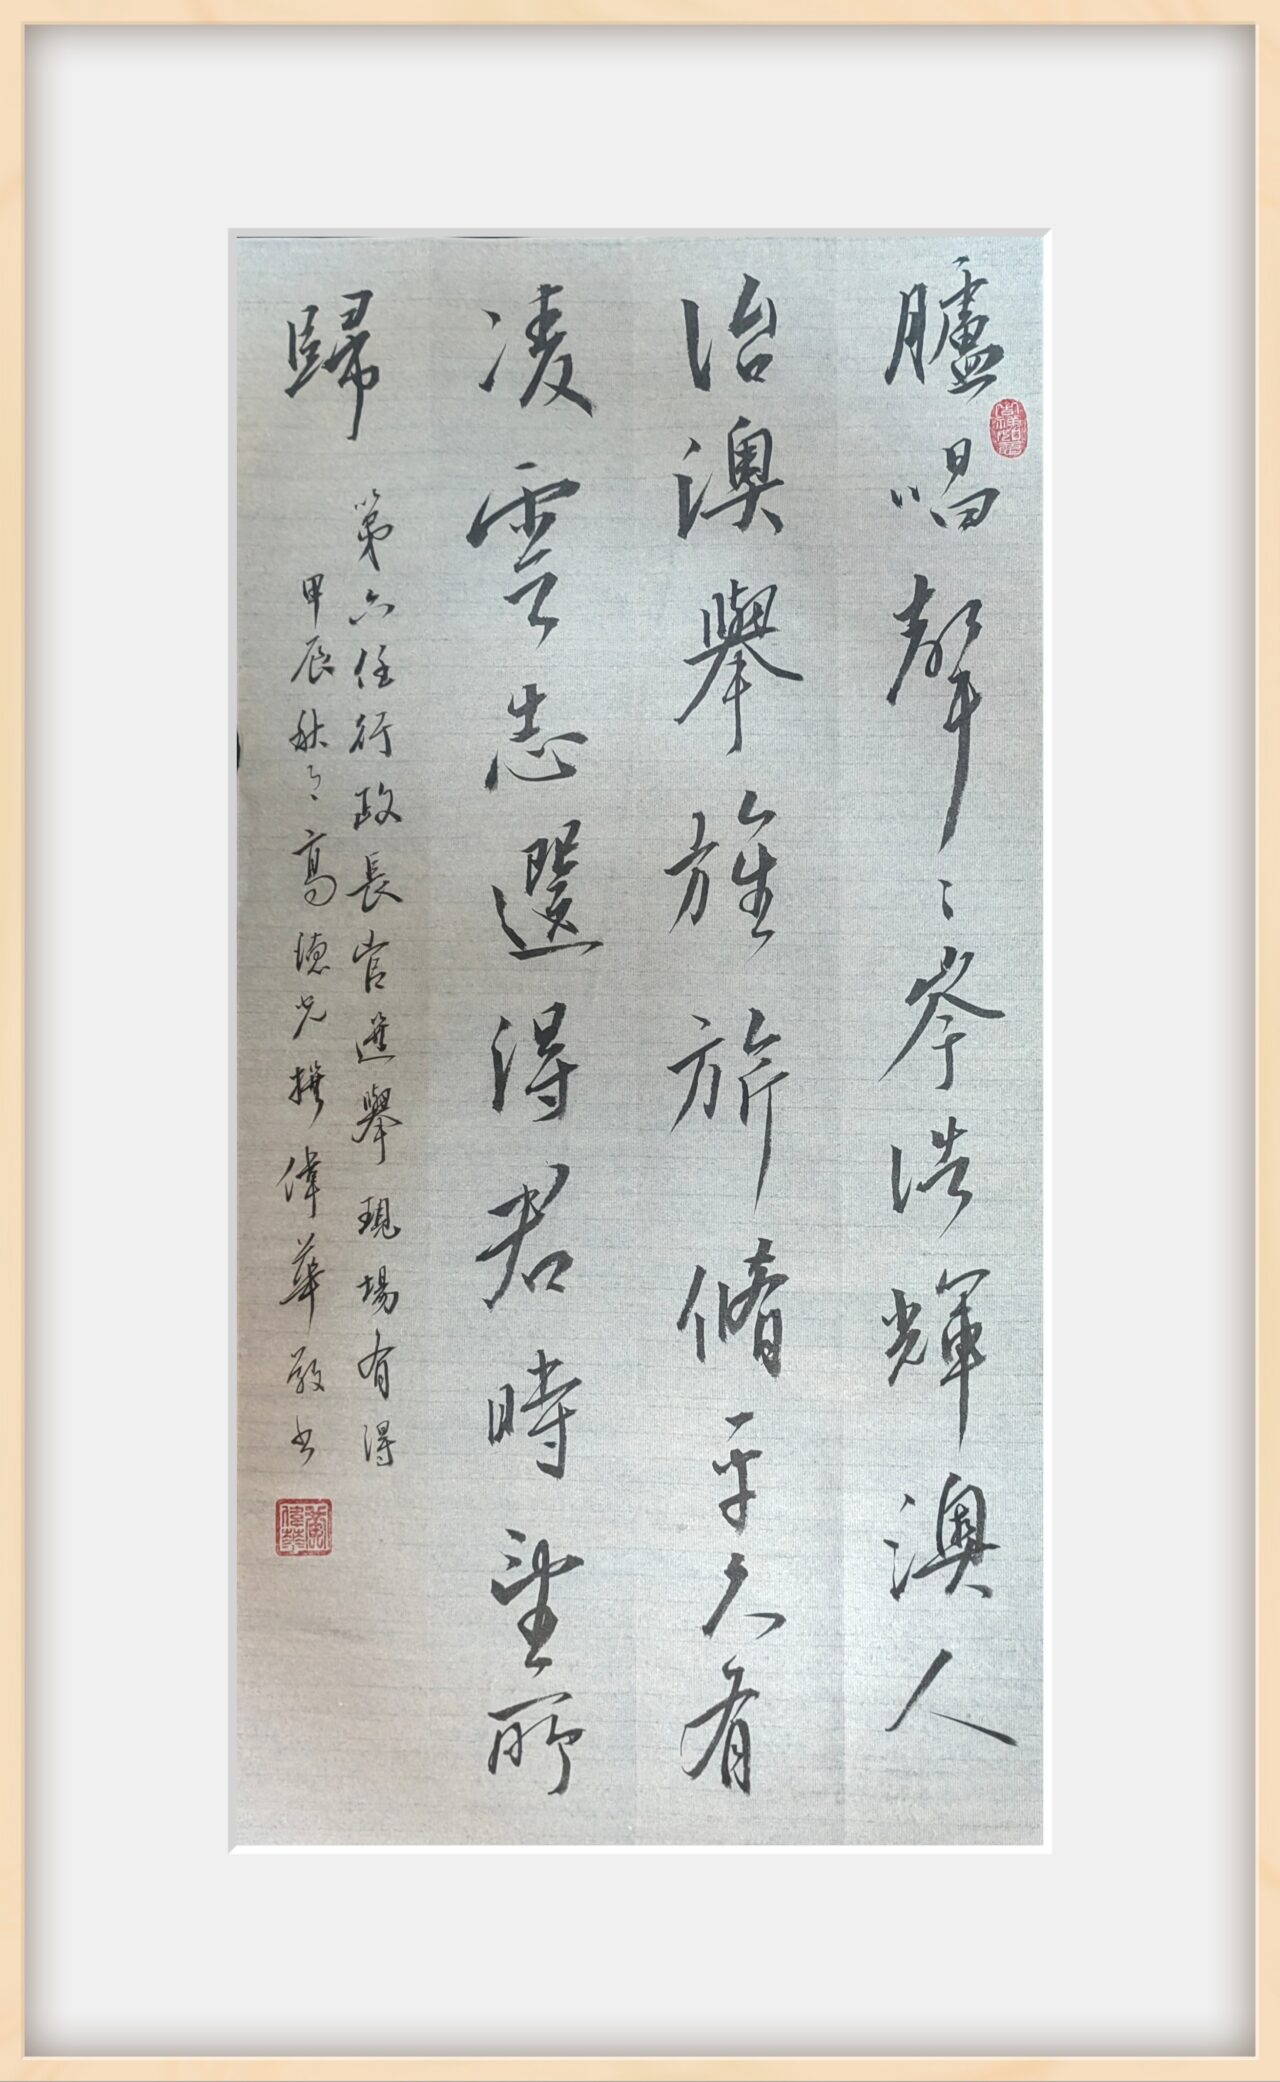 臚唱聲〻岑浩輝澳人
治澳舉旌旂脩平久有
凌雲志選得君時望所
歸
第六任行政長官選舉現場有得
甲辰秋高德撰偉華敬書
黃偉華